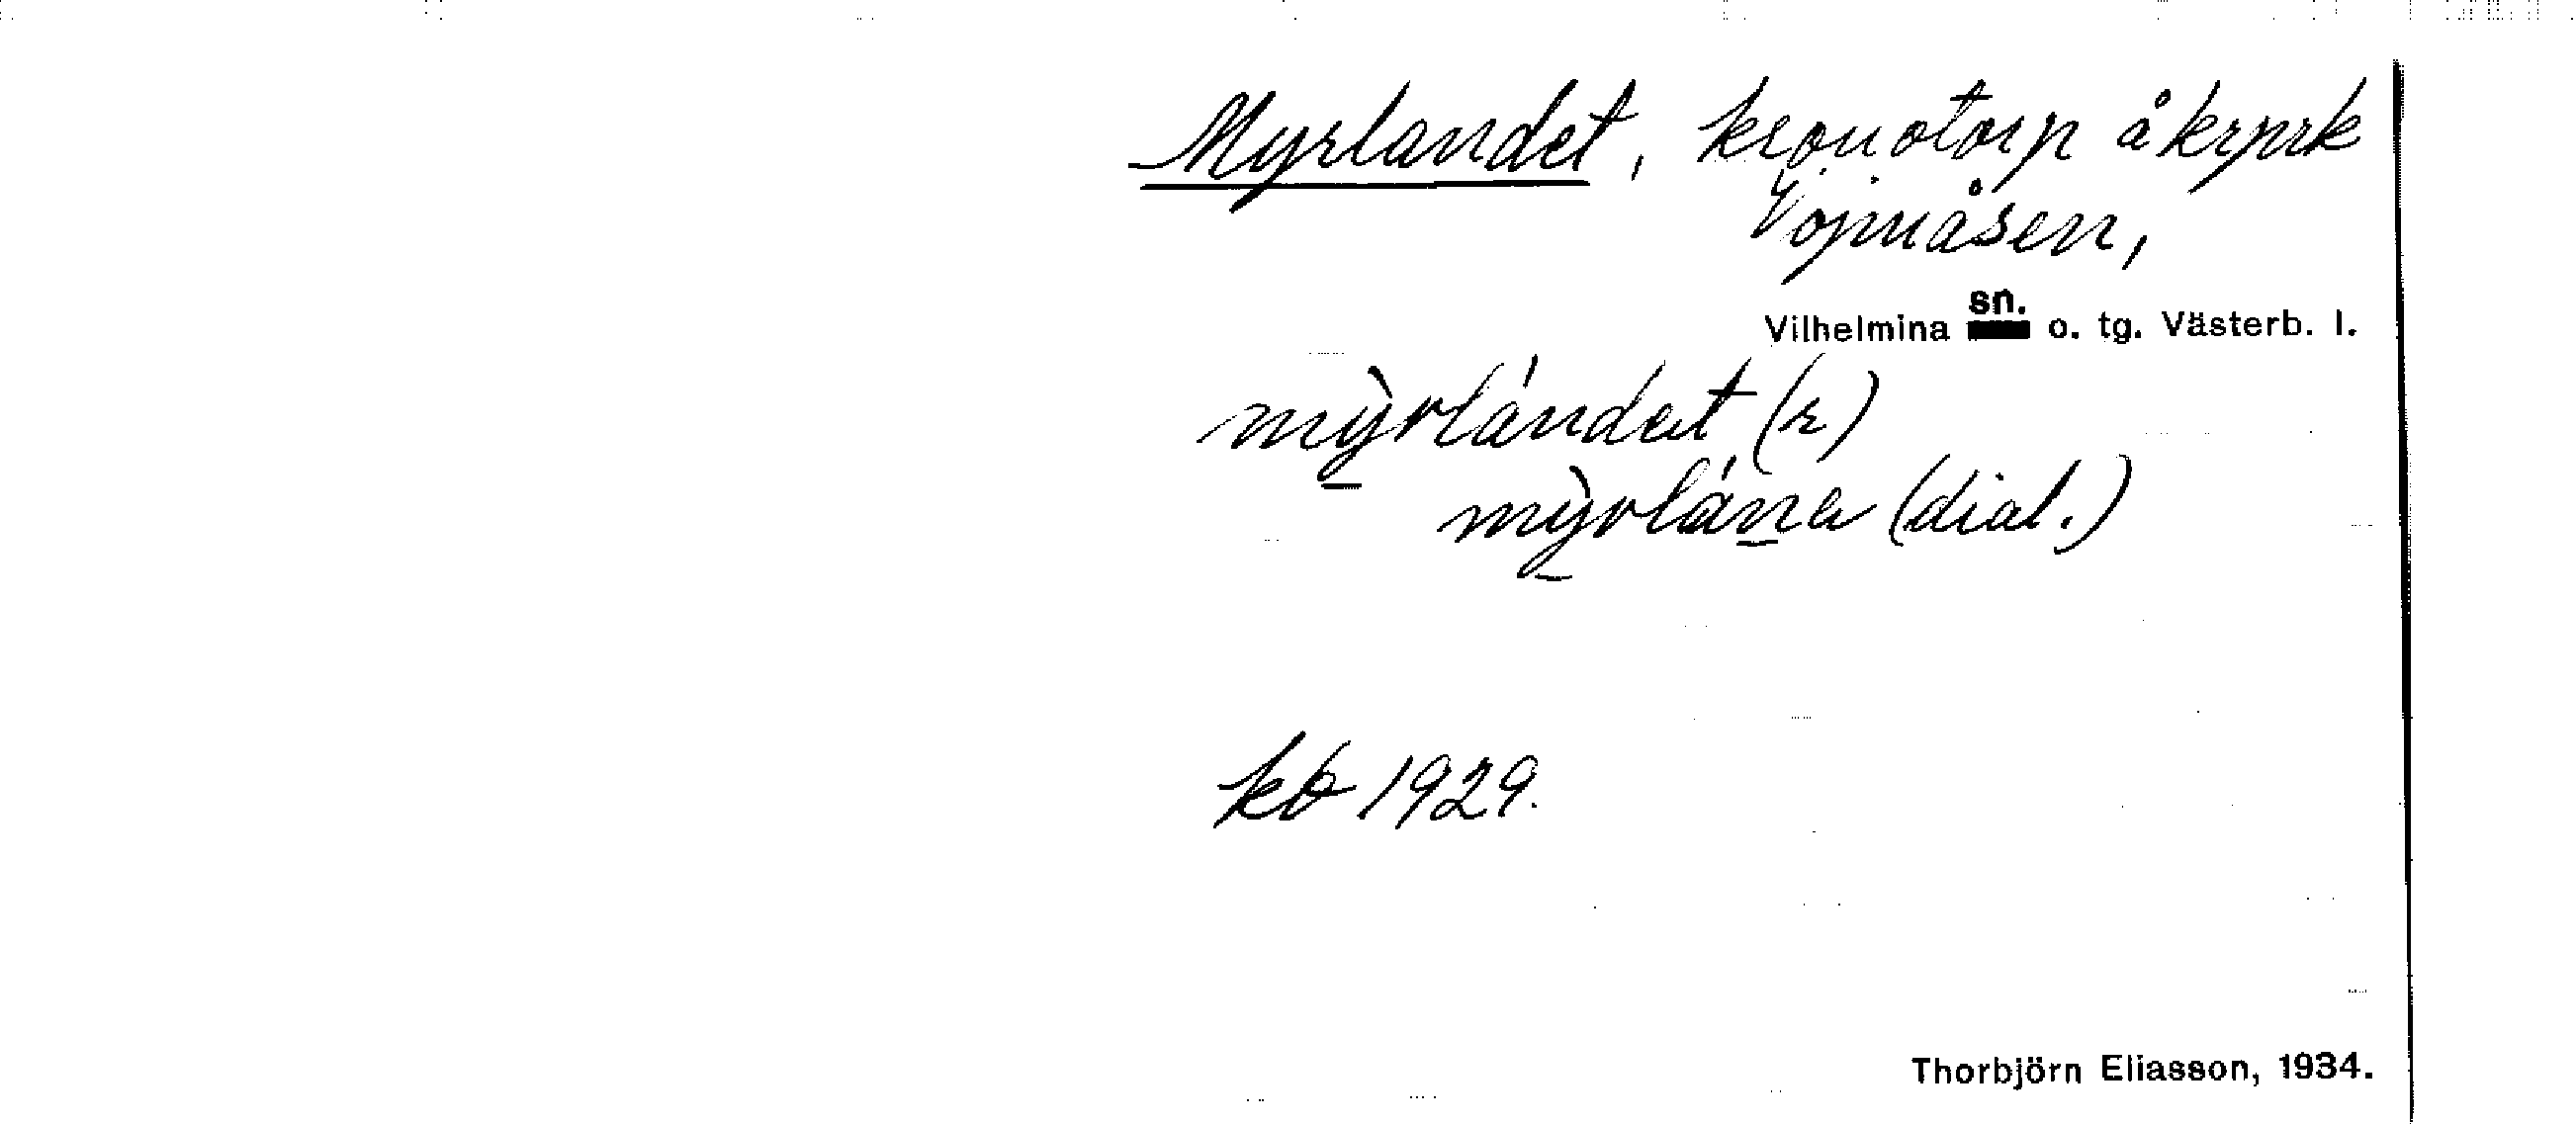 Myrlandet, kronotorp å krprk
Vojmåsen,
Vilhelmina sn. o. tg. Västerb. l.
mỳrlándet (r)
mỳrlána (dial.)
kb 1929.
Thorbjörn Eliasson, 1934.